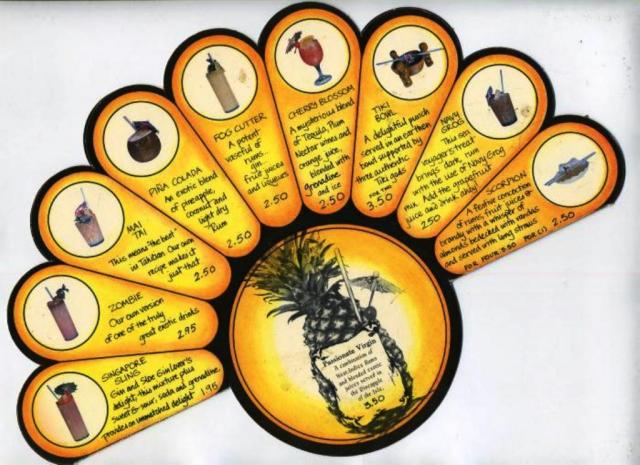 SINGAPORE
SLINGS
Gin and Sloe Gin lover's
delight, this mixture plus
sweet & sour, soda and grenadine
provides an unmatched delight 1.95
ZOMBIE
Our own version
of one of the truly
great exotic drinks
2.95
MAI
TAI
This means "the best"
in Tahitian. Our own
recipe makes it
just that
2.50
PIÑA COLADA
An exotic blend
of pineapple,
coconut and
light dry
rum
2.50
FOG CUTTER
A potent
vassful of
rums...
gin...
fruit juices
and liqueurs
2.50
CHERRY BLOSSOM
A mysterious blend
of Tequila, Plum
Nectar wine and
orange juice,
blended with
grenadine
and ice
2.50
TIKI
BOWL
A delightful punch
served in an earthen
bowl supported by
three authentic
Tiki gods
FOR TWO
3.50
NAVY
GROG
This sea
voyager's treat
brings dark rum
with the use of Navy Grog
mix. Add the grapefruit
juice and drink ahoy!
2.50
SCORPION
A festive concoction
of rums, fruit juices &
brandy with a whisper of
almonds bedecked with vandas
and served with long straws
FOR FOUR 9.50 FOR (1) 2.50
Passionate Virgin
A combination of
West Indies Rums
and blended exotic
juices served in
the Pineapple
of the Isle.
3.50